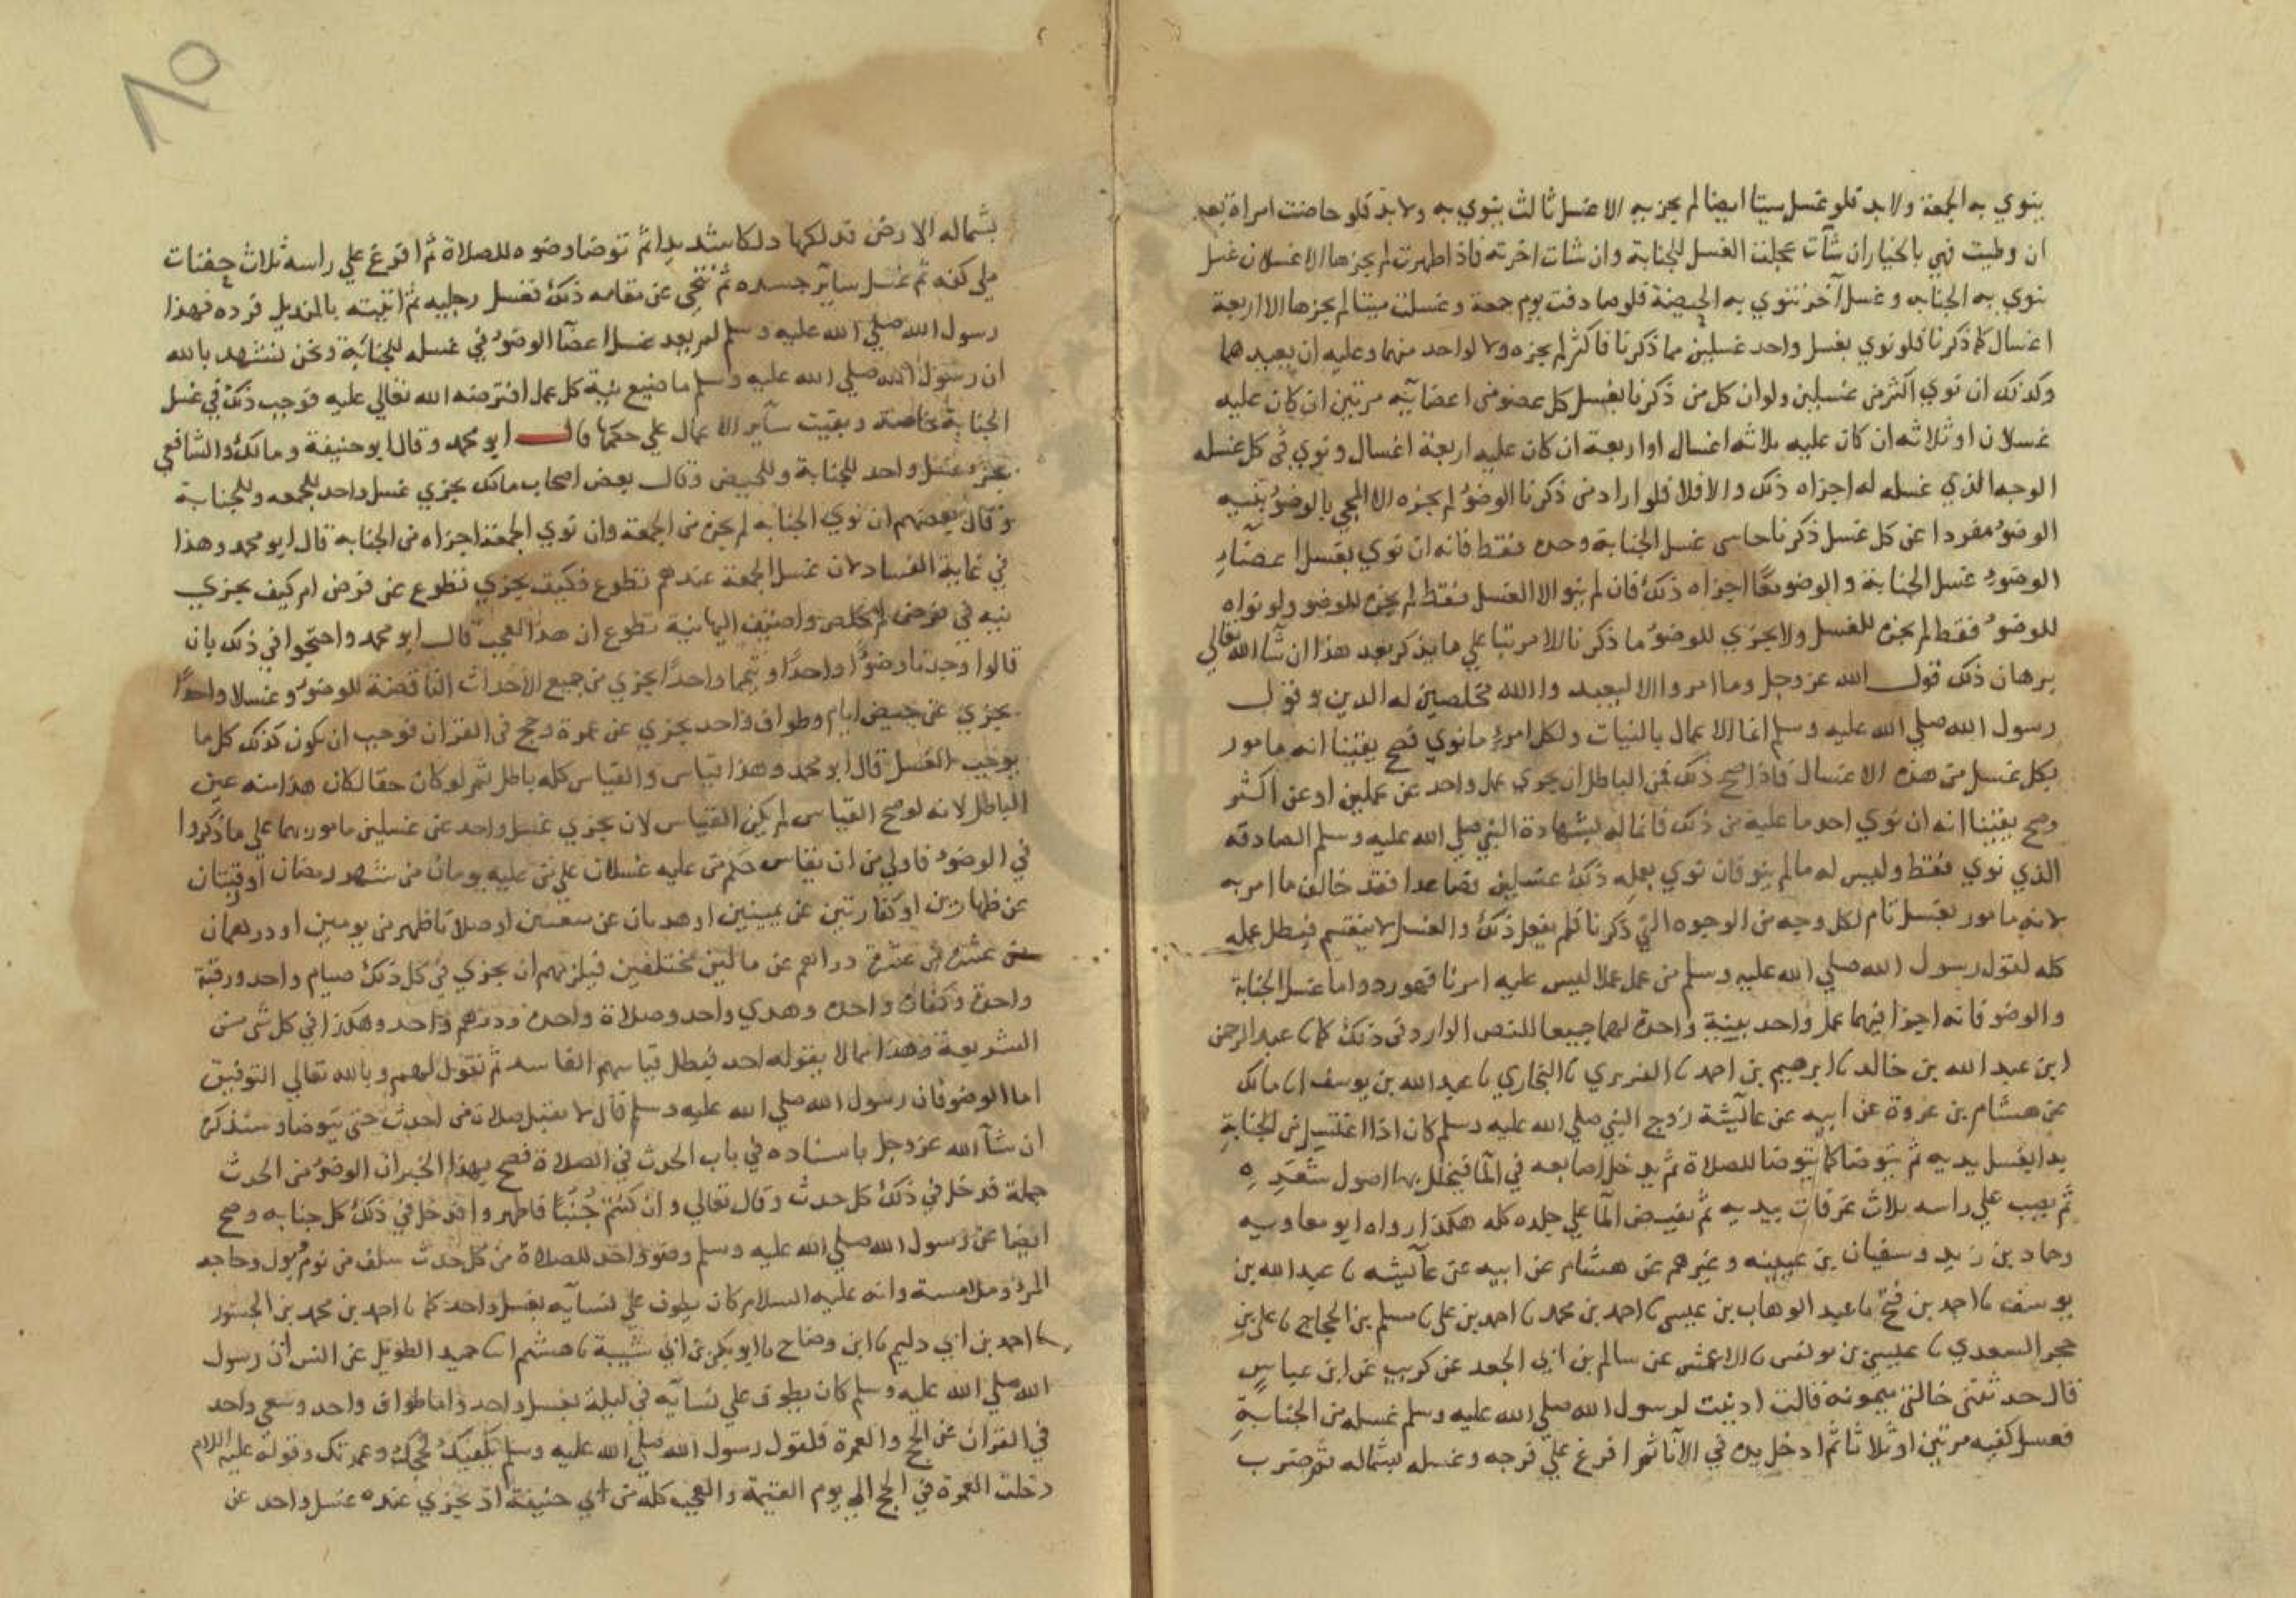 ينوي به الجمعة ولا بد فلو غسل ميتا ايضا لم يجزيه الا غسل ثالث ينوي به ولا بد فلو حاضت امراة بعد
ان وطيت فهي بالخيار ان شآت عجلت الغسل للجنابة وان شات اخرته فاذا طهرت لم يجزها الا غسلان غسل
تنوي به الجنابه وغسل آخر تنوي به الحيضة فلو صادفت يوم جمعة وغسلت ميتا لم يجزها الا اربعة
اغسال كما ذكرنا فلو نوي بغسل واحد غسلين مما ذكرنا فاكثر لم يجزه ولا لواحد منهما وعليه ان يعيدهما
وكذلك ان نوي اكثر من غسلين ولو ان كل من ذكرنا يغسل كل عضو من اعضايه مرتين ان كان عليه
غسلان او ثلاثه ان كان عليه ثلاثه اغسال او اربعة ان كان عليه اربعة اغسال ونوي في كل غسله
الوجه الذي غسله له اجزاه ذلك والا فلا فلو اراد من ذكرنا الوضوُ لم يجزه الا المجي بالوضوُ بنيه
الوضوُ مفردا عن كل غسل ذكرنا حاسي غسل الجنابة وحده فقط فانه ان نوي بغسل اعضآءِ
الوضوءِ غسل الجنابة والوضو معًا اجزاه ذلك فان لم ينو الا الغسل فقط لم يجزه للوضو ولو نواه
للوضوُ فقط لم يجزه للغسل ولا يجزي للوضوُ ما ذكرنا الا مرتبا علي ما يذكر بعد هذا ان شآ الله تعالي
برهان ذلك قول الله عز وجل وما امروا الا ليعبدوا الله مخلصين له الدين وقول
رسول الله صلي الله عليه وسلم انما الاعمال بالنيات ولكل امرء ما نوي فصح يقينا انه مامور
بكل غسل من هذه الاغسال فاذا صح ذلك فمن الباطل ان يجزي عمل واحد عن عملين او عن اكثر
وصح يقينا انه ان نوي احد ما عليه من ذلك فانما له بشهادة النبي صلي الله عليه وسلم الصادقه
الذي نوي فقط وليس له مالم ينو فان نوي بعمله ذلك غسلين فصاعدا فقد خالف ما امر به
لانه مامور بغسل تام لكل وجه من الوجوه التي ذكرنا فلم يفعل ذلك والغسل لا ينقسم فبطل عمله
كله لقول رسول الله صلي الله عليه وسلم من عمل عملا ليس عليه امرنا فهو رد واما غسل الجنابة
والوضو فانه اجزا فيهما عمل واحد بنية واحدة لهما جميعا للنص الوارد في ذلك كما نا عبد الرحمن
ابن عبد الله بن خالد نا ابرهيم بن احمد نا الفربري نا البخاري نا عبد الله بن يوسف انا مالك
عن هشام بن عروة عن ابيه عن عآئيشة زوج النبي صلي الله عليه وسلم كان اذا اغتسل من الجنابة
بدا يغسل يديه ثم يتوضا كما يتوضا للصلاة ثم يدخل اصابعه في المآ فيخلل بها اصول شَعَرِه
ثم يصب علي راسه ثلاث غرفات بيديه ثم يفيض المآ علي جلده كله هكذا رواه ابو معاويه
وحماد بن زيد وسفيان بن عيينه وغيرهم عن هشام عن ابيه عن عآئيشه نا عبد الله بن
يوسف نا احمد بن فتح نا عبد الوهاب بن عيسى نا احمد بن محمد نا احمد بن علي نا مسلم بن الحجاج نا علي بن
حجر السعدي نا عيسى بن يونس نا الاعمش عن سالم بن ابي الجعد عن كريب عن ابن عباسٍ
قال حدثتني خالتي ميمونة قالت ادنيت لرسول الله صلي الله عليه وسلم غسله من الجنابةِ
فغسل كفيه مرتين او ثلاثا ثم ادخل يده في الانآ ثم افرغ علي فرجه وغسله بشماله ثم ضرب
بشماله الارض فدلكها دلكا شديدا ثم توضا وضوه للصلاة ثم افرغ علي راسه ثلاث حفنات
ملي كفه ثم غسل سآير جسده ثم تنحي عن مقامه ذلك فغسل رجليه ثم اتيته بالمنديل فرده فهذا
رسول الله صلي الله عليه وسلم لم يعد غسل اعضآ الوضوُ في غسله للجنابة ونحن نشهد بالله
ان رسول الله صلي الله عليه وسلم ما ضيع نية كل عمل افترضه الله تعالي عليه فوجب ذلك في غسل
الجنابة خاصة وبقيت سآير الاعمال علي حكمها قال ابو محمد وقال ابو حنيفة ومالك والشافعي
يجزء غسل واحد للجنابة وللحيض وقال بعض اصحاب مالك يجزي غسل واحد للجمعه وللجنابة
وقال بعضهم ان نوي الجنابه لم يجزه من الجمعة وان نوي الجمعة اجزاه من الجنابة قال ابو محمد وهذا
في غاية الفساد لان غسل الجمعة عندهم تطوع فكيف يجزي تطوع عن فرض ام كيف يجزي
نيه في فرض لم تخلص واضيف اليها نية تطوع ان هذا لعجب قال ابو محمد واحتجوا في ذلك بان
قالوا وجدنا وضوًا واحدًا وتيمما واحدًا يجزي من جميع الاحداث الناقضة للوضوُ وغسلا واحدًا
يجزي عن حيض ايام وطواف واحد يجزي عن عمرة وحج في القران فوجب ان يكون كذلك كل ما
يوجب الغسل قال ابو محمد وهذا قياس والقياس كله باطل ثم لو كان حقا لكان هذا منه عين
الباطل لانه لو صح القياس لم يكن القياس لان يجزي غسل واحد عن غسلين مامور بهما علي ما ذكروا
في الوضوُ فاولي من ان يقاس حكم من عليه غسلان علي من عليه يومان من شهر رمضان او رقبتان
عن ظهارين او كفارتين عن يمينين او هديان عن متعتين او صلاتا ظهر من يومين او درهمان
من عشرة في عشرة دراهم عن مالين مختلفين فيلزمهم ان يجزي في كل ذلك صيام واحد ورقبة
واحدة وكفارة واحدة وهدي واحد وصلاة واحده ودرهم واحد وهكذا في كل شي من
الشريعة وهذا مالا يقوله احد فبطل قياسهم الفاسد ثم نقول لهم وبالله تعالي التوفيق
اما الوضو فان رسول الله صلي الله عليه وسلم قال لا تقبل صلاة من احدث حتي يتوضا وسنذكره
ان شآ الله عز وجل باسناده في باب الحدث في الصلاة فصح بهذا الخبر ان الوضوُ من الحدث
جملة فدخل في ذلك كل حدث وقال تعالي وان كنتم جُنُبًا فاطهروا فدخل في ذلك كل جنابه وصح
ايضا عن رسول الله صلي الله عليه وسلم وضو واحد للصلاة من كل حدث سلف من نوم وبول وحاجه
المرء وملامسة وانه عليه السلام كان يطوف علي نسآيه بغسل واحد كما نا احمد بن محمد بن الجسور
نا احمد بن ابي دليم نا ابن وضاح نا ابو بكر بن ابي شيبة نا هشيم انا حميد الطويل عن انس ان رسول
الله صلي الله عليه وسلم كان يطوف علي نسآيه في ليلة بغسل واحد واما طواف واحد وسعي واحد
في القران عن الحج والعمرة فلقول رسول الله صلي الله عليه وسلم يكفيك لحجك وعمرتك وقوله عليه السلام
دخلت العمرة في الحج الي يوم القيمة والعجب كله من ابي حنيفة اذ يجزي عنده غسل واحد عن